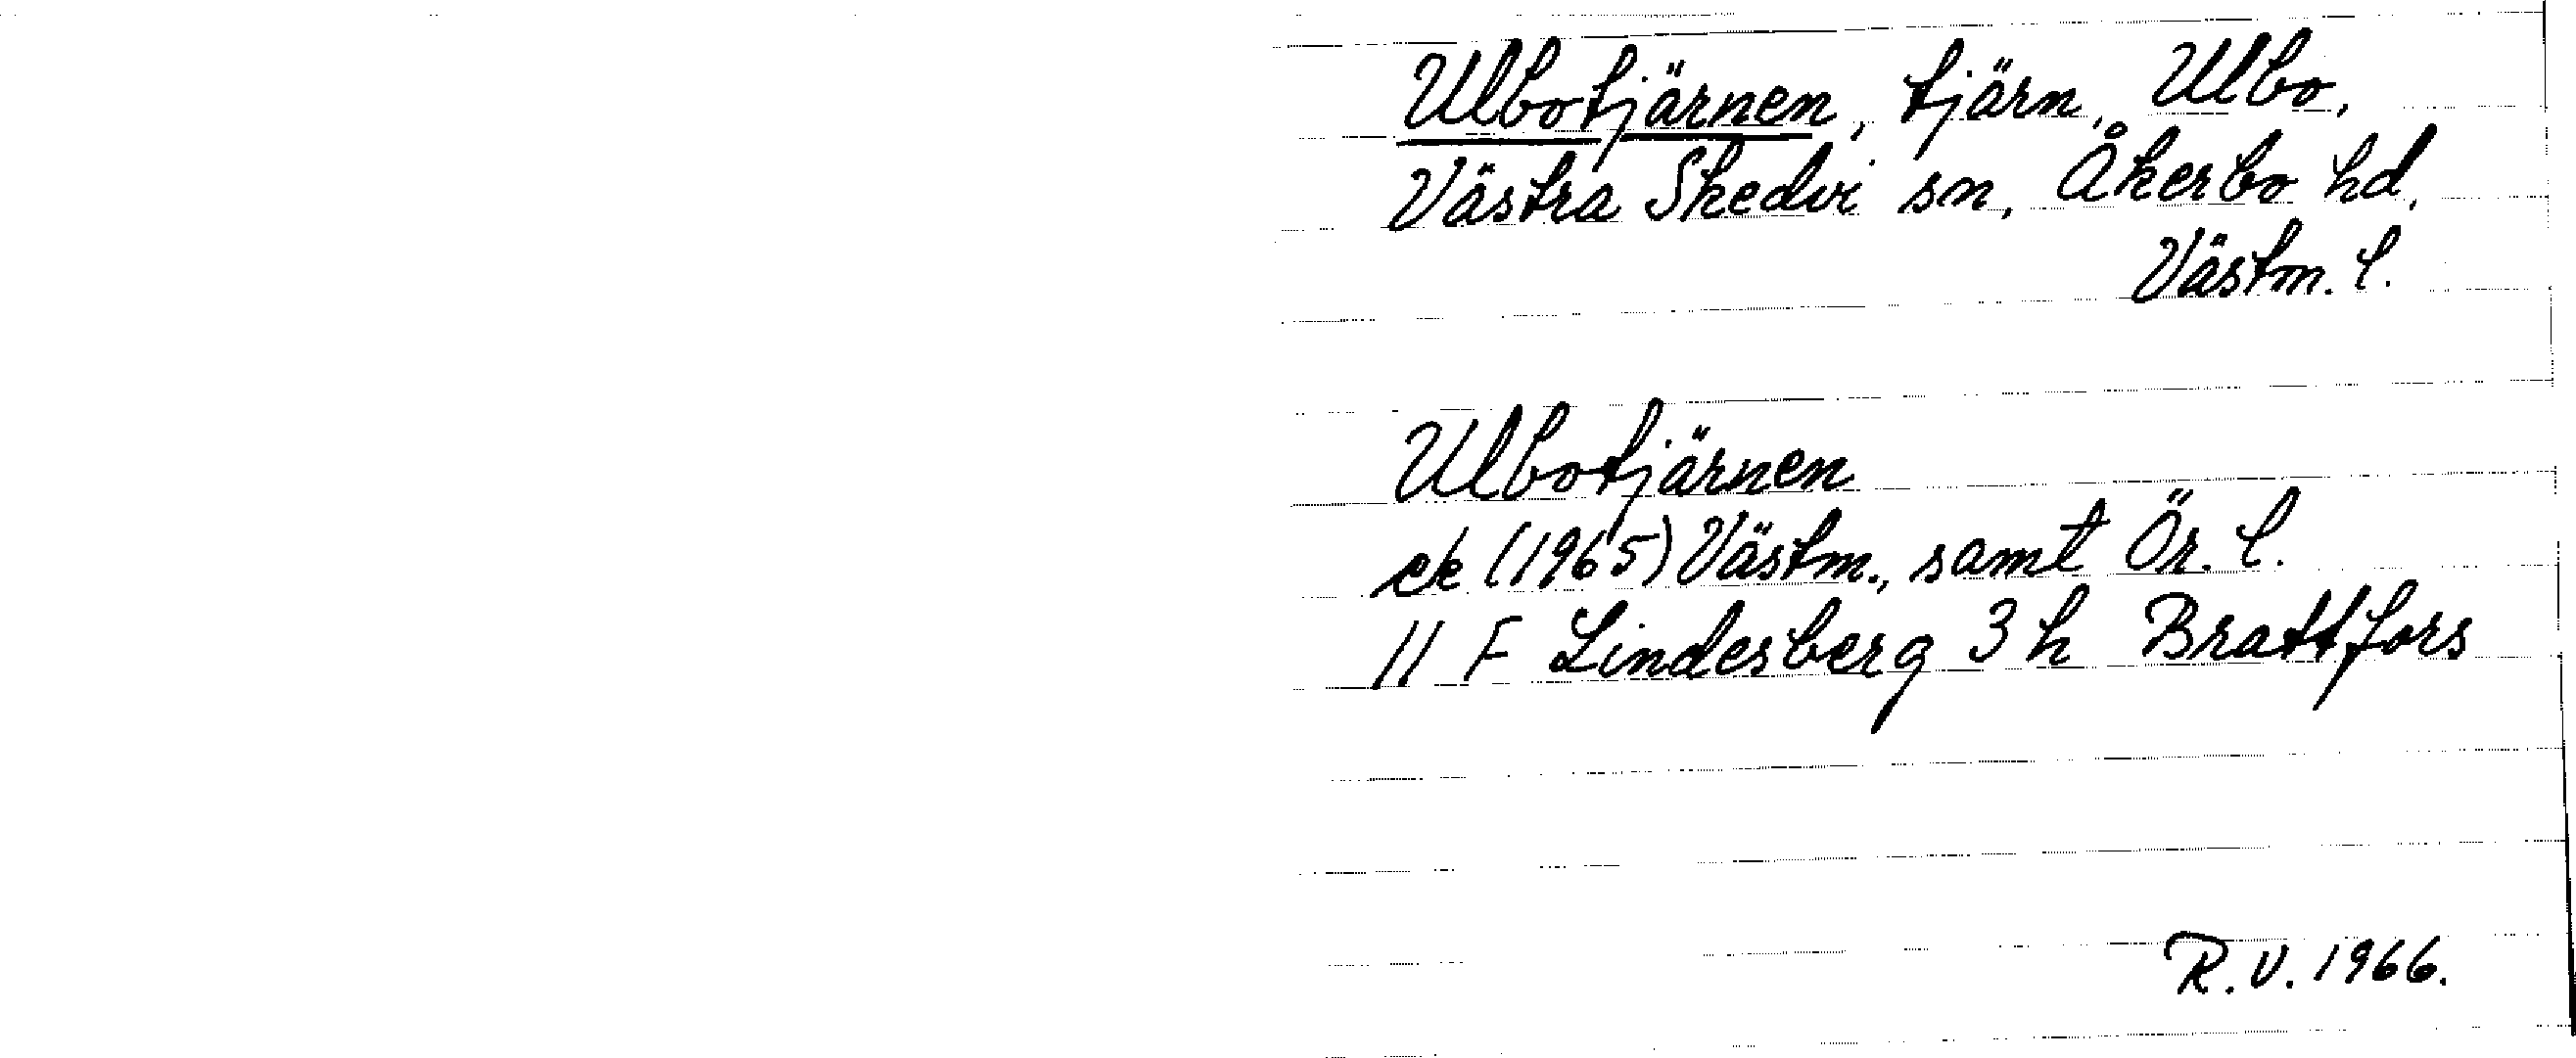 Ulbotjärnen, tjärn, Ulbo,
Västra Skedvi sn, Åkerbo hd,
Västm. l.
Ulbotjärnen
ek (1965) Västm., samt Ör. l.
11 F Lindesberg 3 h Brattfors
R.V. 1966.